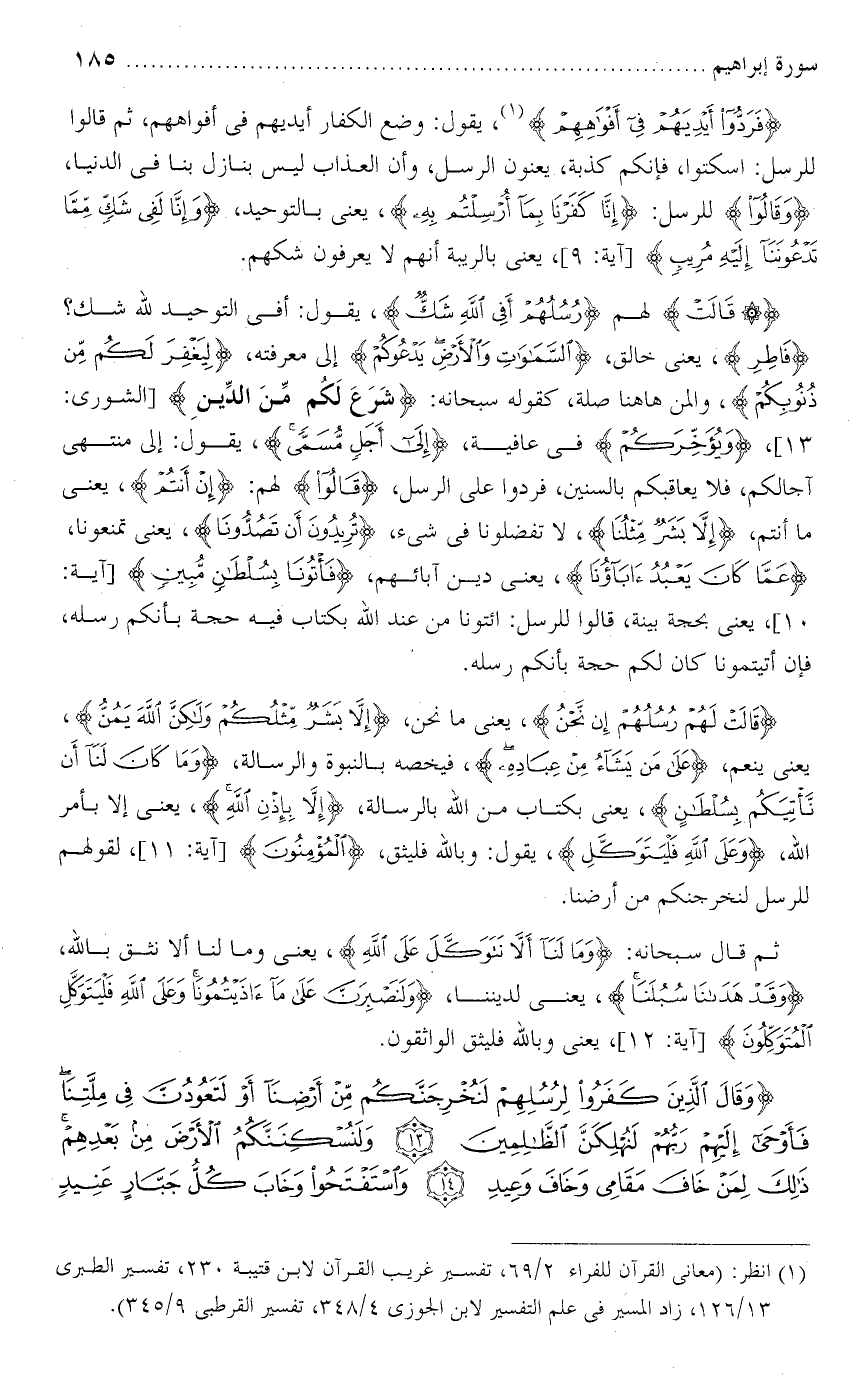 سورة إبراهيم ........................................................................ ١٨٥
﴿فَرَدُّوٓاْ أَيْدِيَهُمْ فِىٓ أَفْوَٰهِهِمْ﴾(١)، يقول: وضع الكفار أيديهم فى أفواههم، ثم قالوا
للرسل: اسكتوا، فإنكم كذبة، يعنون الرسل، وأن العذاب ليس بنازل بنا فى الدنيا،
﴿وَقَالُوٓاْ﴾ للرسل: ﴿إِنَّا كَفَرْنَا بِمَآ أُرْسِلْتُم بِهِۦ﴾، يعنى بالتوحيد، ﴿وَإِنَّا لَفِى شَكٍّ مِّمَّا
تَدْعُونَنَآ إِلَيْهِ مُرِيبٍ﴾ [آية: ٩]، يعنى بالريبة أنهم لا يعرفون شكهم.
﴿۞ قَالَتْ﴾ لهم ﴿رُسُلُهُمْ أَفِى ٱللَّهِ شَكٌّ﴾، يقول: أفى التوحيد لله شك؟
﴿فَاطِرِ﴾، يعنى خالق، ﴿ٱلسَّمَٰوَٰتِ وَٱلْأَرْضِ ۖ يَدْعُوكُمْ﴾ إلى معرفته، ﴿لِيَغْفِرَ لَكُم مِّن
ذُنُوبِكُمْ﴾، والمن هاهنا صلة، كقوله سبحانه: ﴿شَرَعَ لَكُم مِّنَ الدِّينِ﴾ [الشورى:
١٣]، ﴿وَيُؤَخِّرَكُمْ﴾ فى عافية، ﴿إِلَىٰٓ أَجَلٍ مُّسَمًّى ۚ﴾، يقول: إلى منتهى
آجالكم، فلا يعاقبكم بالسنين، فردوا على الرسل، ﴿قَالُوٓاْ﴾ لهم: ﴿إِنْ أَنتُمْ﴾، يعنى
ما أنتم، ﴿إِلَّا بَشَرٌ مِّثْلُنَا﴾، لا تفضلونا فى شىء، ﴿تُرِيدُونَ أَن تَصُدُّونَا﴾، يعنى تمنعونا،
﴿عَمَّا كَانَ يَعْبُدُ ءَابَآؤُنَا﴾، يعنى دين آبائهم، ﴿فَأْتُونَا بِسُلْطَٰنٍ مُّبِينٍ﴾ [آية:
١٠]، يعنى بحجة بينة، قالوا للرسل: ائتونا من عند الله بكتاب فيه حجة بأنكم رسله،
فإن أتيتمونا كان لكم حجة بأنكم رسله.
﴿قَالَتْ لَهُمْ رُسُلُهُمْ إِن نَّحْنُ﴾، يعنى ما نحن، ﴿إِلَّا بَشَرٌ مِّثْلُكُمْ وَلَٰكِنَّ ٱللَّهَ يَمُنُّ﴾،
يعنى ينعم، ﴿عَلَىٰ مَن يَشَآءُ مِنْ عِبَادِهِۦ ۖ﴾، فيخصه بالنبوة والرسالة، ﴿وَمَا كَانَ لَنَآ أَن
نَّأْتِيَكُم بِسُلْطَٰنٍ﴾، يعنى بكتاب من الله بالرسالة، ﴿إِلَّا بِإِذْنِ ٱللَّهِ ۚ﴾، يعنى إلا بأمر
الله، ﴿وَعَلَى ٱللَّهِ فَلْيَتَوَكَّلِ﴾، يقول: وبالله فليثق، ﴿ٱلْمُؤْمِنُونَ﴾ [آية: ١١]، لقولهم
للرسل لنخرجنكم من أرضنا.
ثم قال سبحانه: ﴿وَمَا لَنَآ أَلَّا نَتَوَكَّلَ عَلَى ٱللَّهِ﴾، يعنى وما لنا ألا نثق بالله،
﴿وَقَدْ هَدَىٰنَا سُبُلَنَا ۚ﴾، يعنى لديننا، ﴿وَلَنَصْبِرَنَّ عَلَىٰ مَآ ءَاذَيْتُمُونَا ۚ وَعَلَى ٱللَّهِ فَلْيَتَوَكَّلِ
ٱلْمُتَوَكِّلُونَ﴾ [آية: ١٢]، يعنى وبالله فليثق الواثقون.
﴿وَقَالَ ٱلَّذِينَ كَفَرُواْ لِرُسُلِهِمْ لَنُخْرِجَنَّكُم مِّنْ أَرْضِنَآ أَوْ لَتَعُودُنَّ فِى مِلَّتِنَا ۖ
فَأَوْحَىٰٓ إِلَيْهِمْ رَبُّهُمْ لَنُهْلِكَنَّ ٱلظَّٰلِمِينَ ١٣ وَلَنُسْكِنَنَّكُمُ ٱلْأَرْضَ مِنۢ بَعْدِهِمْ ۚ
ذَٰلِكَ لِمَنْ خَافَ مَقَامِى وَخَافَ وَعِيدِ ١٤ وَٱسْتَفْتَحُواْ وَخَابَ كُلُّ جَبَّارٍ عَنِيدٍ
(١) انظر: (معانى القرآن للفراء ٦٩/٢، تفسير غريب القرآن لابن قتيبة ٢٣٠، تفسير الطبرى
١٢٦/١٣، زاد المسير فى علم التفسير لابن الجوزى ٣٤٨/٤، تفسير القرطبى ٣٤٥/٩).